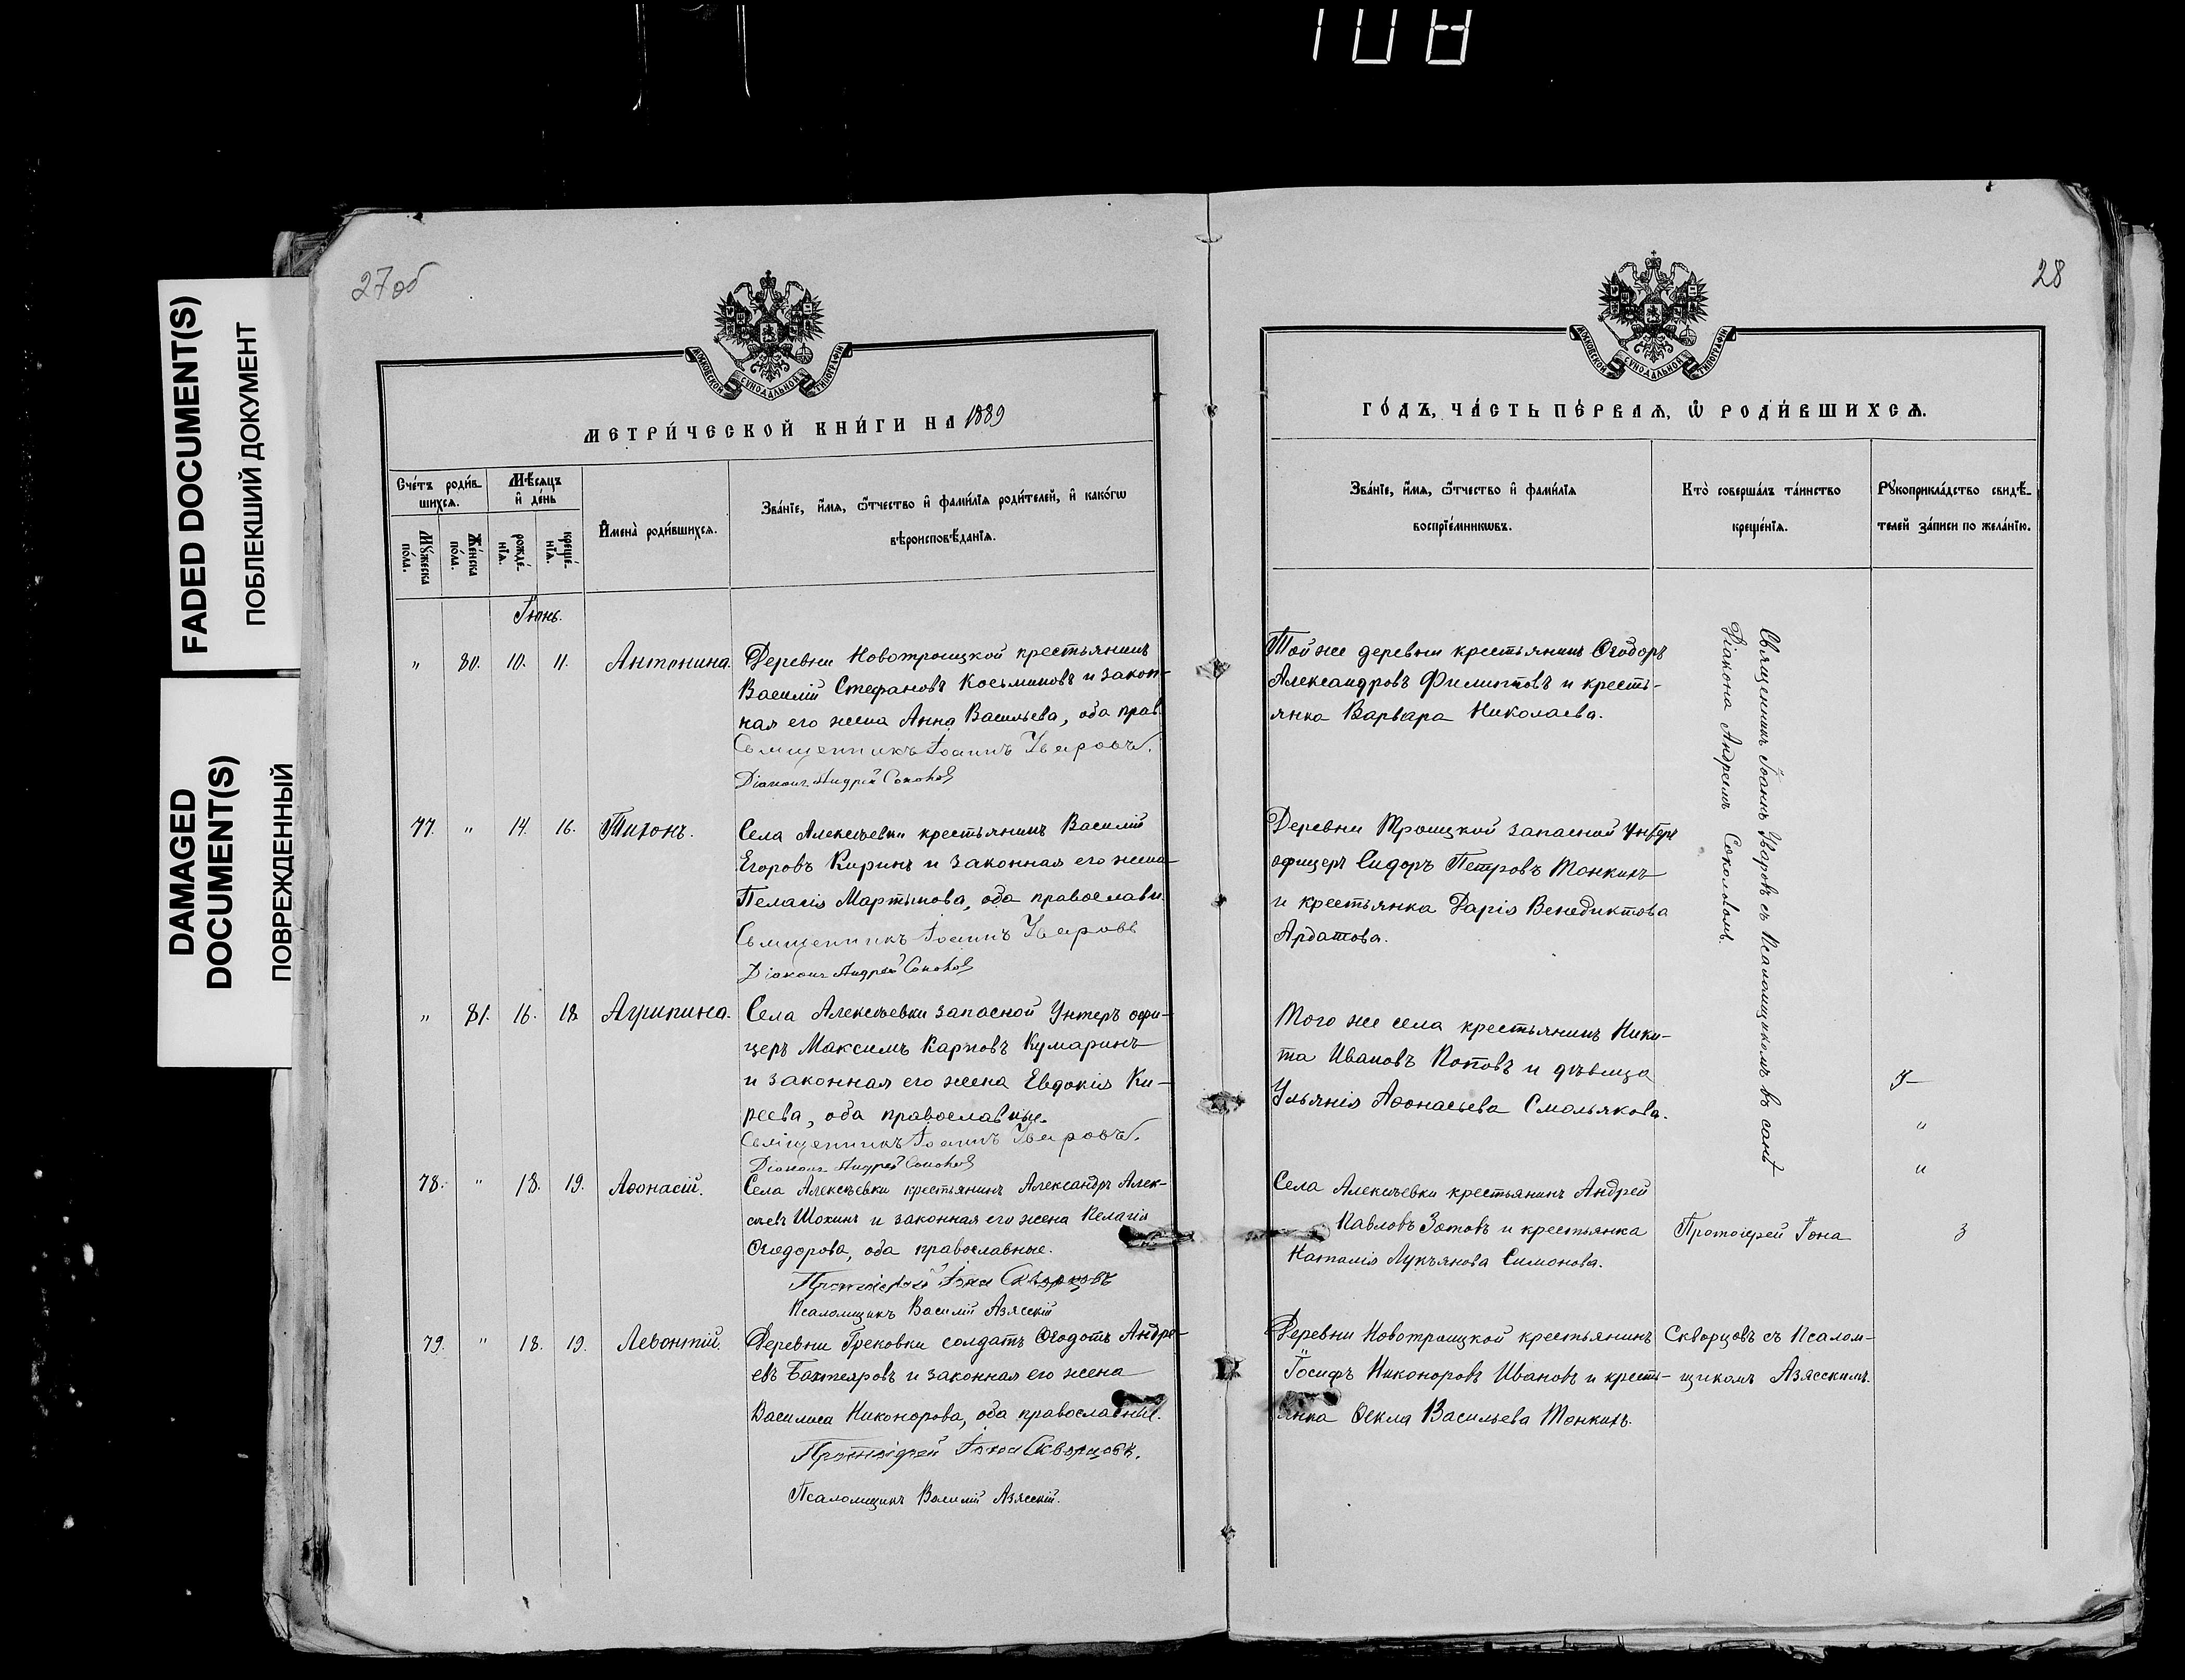 108
FADED DOCUMENT(S)
ПОБЛЕКШИЙ ДОКУМЕНТ
DAMAGED
DOCUMENT(S)
ПОВРЕЖДЕННЫЙ
27 об
МОСКОВСКОЙ СѴНОДАЛЬНОЙ ТИПОГРАФІИ
МЕТРИ́ЧЕСКОЙ КНИ́ГИ НА 1889
Сче́тъ роди́в-
шихсѧ.
Мѣ́сѧцъ
и҆ де́нь
Мꙋ́жеска
по́ла.
Же́нска
по́ла.
рожде́-
нїѧ.
креще́-
нїѧ.
И҆мена̀ роди́вшихсѧ.
Зва́нїе, и҆́мѧ, ѻ҆́тчество и҆ фами́лїѧ роди́телей, и҆ како́гѡ
вѣроисповѣ́данїѧ.
Іюнь.
" 80. 10. 11. Антонина. Деревни Новотроицкой крестьянинъ
Василій Стефановъ Косьминовъ и закон-
ная его жена Анна Васильева, оба прав.
Священникъ Іоаннъ Уваровъ.
Діаконъ Андрей Соколов
77. " 14. 16. Тихонъ. Села Алексѣевки крестьянинъ Василій
Егоровъ Киринъ и законная его жена
Пелагія Мартынова, оба православн.
Священникъ Іоаннъ Уваровъ
Діаконъ Андрей Соколов
" 81. 16. 18. Агрипина. Села Алексѣевки запасной Унтеръ офи-
церъ Максимъ Карповъ Кумаринъ
и законная его жена Евдокія Ки-
реева, оба православные.
Священникъ Іоаннъ Уваровъ.
Діаконъ Андрей Соколов
78. " 18. 19. Аѳонасій. Села Алексѣевки крестьянинъ Александръ Алек-
сѣевъ Шохинъ и законная его жена Пелагія
Ѳеодорова, оба православные.
Протоіерей Іона Скворцовъ
Псаломщикъ Василій Азясскій
79. " 18. 19. Левонтій. Деревни Грековки солдатъ Ѳеодотъ Андре-
евъ Бахтеяровъ и законная его жена
Василиса Никонорова, оба православные.
Протоіерей Іона Скворцовъ.
Псаломщикъ Василій Азясскій.
28
МОСКОВСКОЙ СѴНОДАЛЬНОЙ ТИПОГРАФІИ
ГО́ДЪ, ЧА́СТЬ ПЕ́РВАЯ, Ѡ҆ РОДИ́ВШИХСѦ.
Зва́нїе, и҆́мѧ, ѻ҆́тчество и҆ фами́лїѧ
воспрїе́мникѡвъ.
Кто̀ соверша́лъ та́инство
креще́нїѧ.
Рꙋкоприкла́дство свидѣ́-
телей за́писи по жела́нїю.
Той же деревни крестьянинъ Ѳеодоръ
Александровъ Филиповъ и кресть-
янка Варвара Николаева.
Деревни Троицкой запасной Унтеръ
офицеръ Сидоръ Петровъ Тонкихъ
и крестьянка Дарія Венедиктова
Ардатова.
Того же села крестьянинъ Ники-
та Ивановъ Поповъ и дѣвица
Ульянія Аѳонасьева Смольякова.
Села Алексѣевки крестьянинъ Андрей
Павловъ Зотовъ и крестьянка
Наталія Лукъянова Симонова.
Деревни Новотроицкой крестьянинъ
Іосифъ Никоноровъ Ивановъ и кресть-
янка Ѳекла Васильева Тонкихъ.
Священникъ Іоаннъ Уваровъ съ Псаломщикомъ въ санѣ
Діакона Андреемъ Соколовомъ.
Протоіерей Іона
Скворцовъ съ Псалом-
щикомъ Азясскимъ.
"
"
3